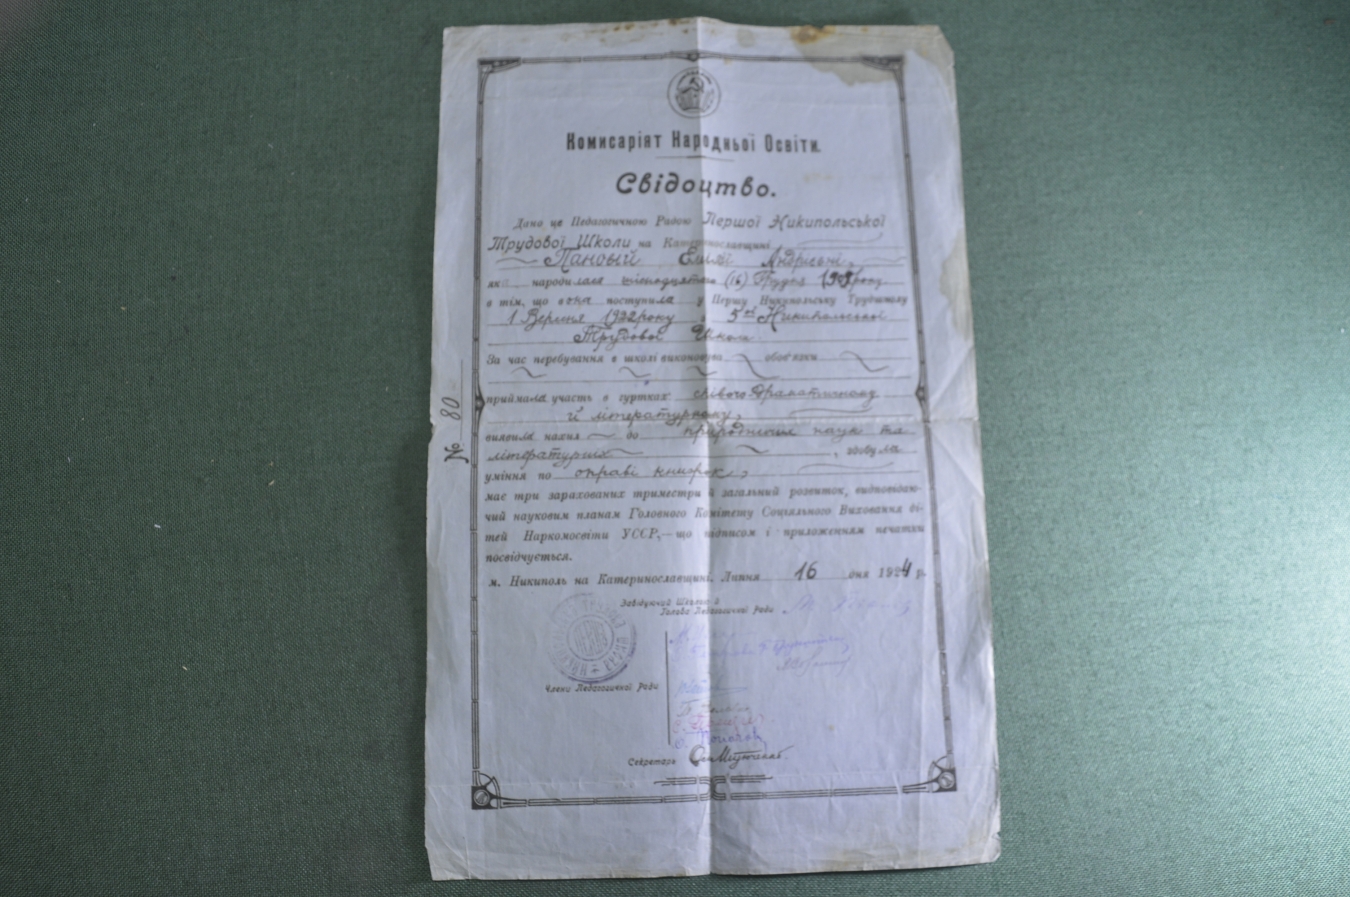 Комисаріят Народньої Освіти.
Свідоцтво.
Дано це Педагогичною Радою Першої Никипольської
Трудової Школи на Катеринославщині
Емілії Андріївні,
як народилася шіснадцятого (16) Грудня року
в тім, що вона поступила у Першу Никипольську Трудшколу
1 Вересня 1922 року з 5ої Никипольської
Трудової Школи
За час перебування в школі виконовува обов'язки
приймала участь в гуртках співного драматичному
й літературному,
виявила нахил до природничих наук та
літературних , здобула
уміння по оправі книжок,
має три зарахованих триместри й загальний розвиток, видповідаю-
чий науковим планам Головного Комітету Соціяльного Виховання ді-
тей Наркомосвіти УССР,— що підписом і приложенням печатки
посвідчується.
м. Никиполь на Катеринославщині. Липня 16 дня 1924 р.
Завідуючий Школою й
Голова Педагогичної Ради
Члени Педагогичної Ради
Секретарь
№ 80